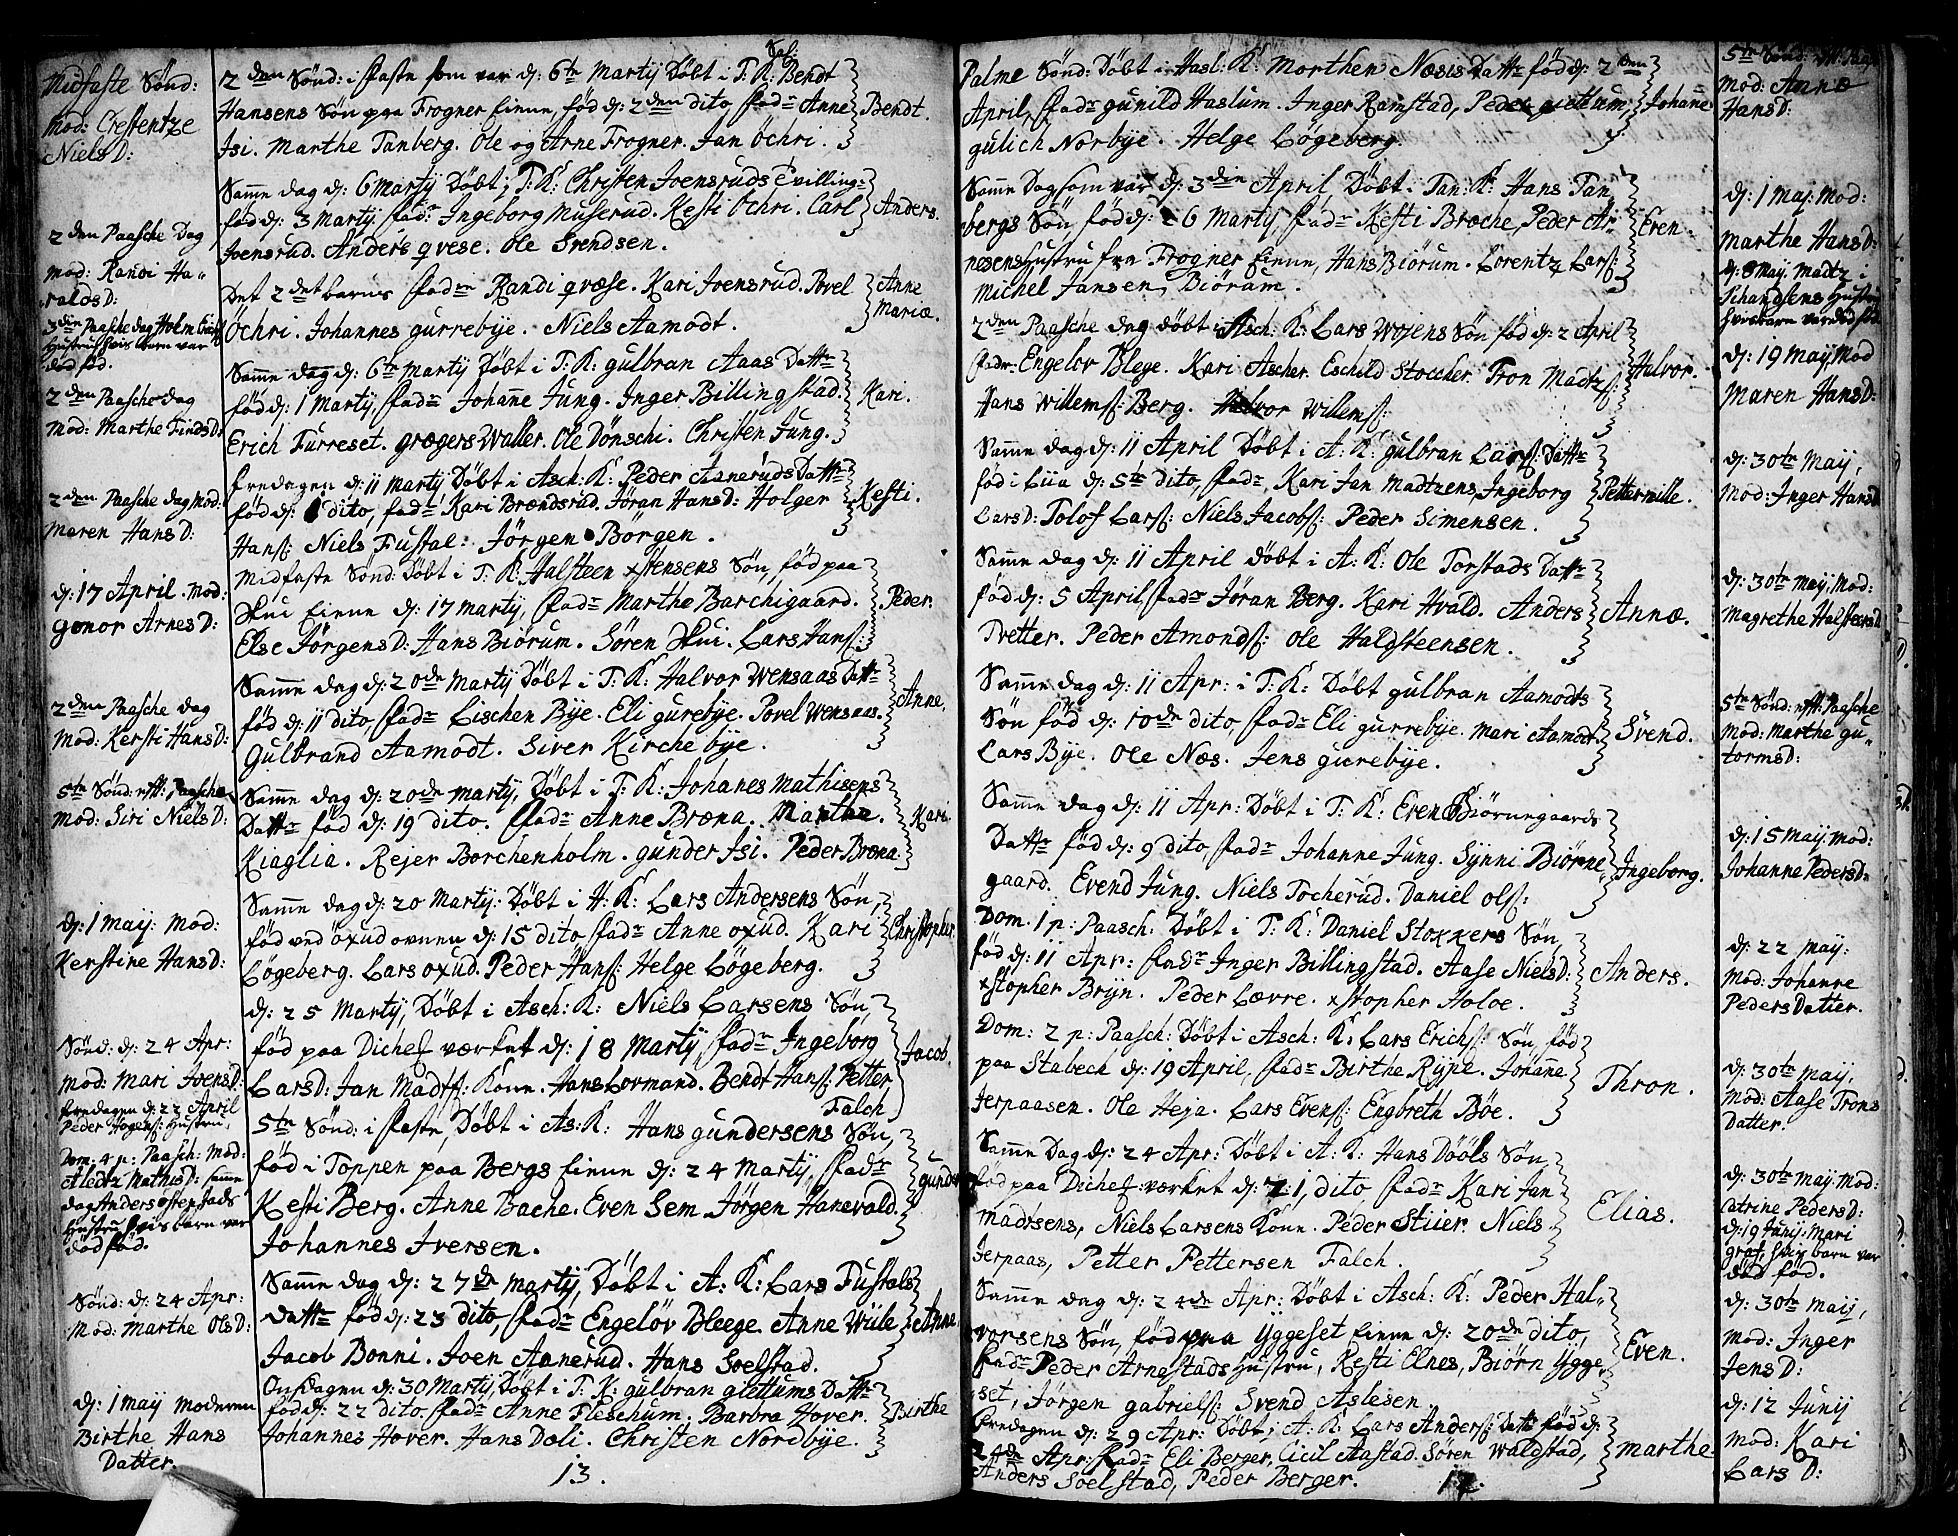 Midfaste Sönd:
Mod: Crestentze
Niels D:
2den Paasche Dag
Mod: Randi Ha"
ralds D:
3die Paasche dag Holm
Hustru hvis barn var
död föd.
2den Paasche dag
Mod: Marthe Finds D:
2den Paasche dag Mod:
Maren Hans D:
d: 17 April. Mod:
gonor Arnes D:
2den Paasche dag
Mod: Kersti Hans D:
5te Sönd: Paasche
Mod: Siri Niels D:
d: 1 May: Mod:
Kerstine Hans D:
Sönd: d: 24 Apr:
Mod: Mari Joens D:
fredagen d: 22 April
Peder Hustru,
Dom: 4 p: Paasch: Mod:
Aledtz Mathis D: samme
dag Anders östenstads
Hustru hvis barn var
död föd.
Sönd: d: 24 Apr:
Mod: Marthe Ols D:
d: 1 may moderen
Birthe Hans
Datter
Sal:
2den Sönd: i faste som var d: 6te Martÿ Döbt i T: K: Bendt
Hansens Sön paa Frogner Einne, föd d: 2den dito fadr Anne
Isi. Marthe Tanberg. Ole og Arne Frogner. Jan Öchri. Bendt.
Samme dag d: 6 Martÿ Döbt i T: K: Christen Joensruds tvilling
föd d: 3 Martÿ fadr Ingeborg Muserud. Kesti Öchri. Carl
Joensrud. Anders qvese. Ole Svendsen. Anders.
Det 2det barns fadre Randi qvæse. Kari Joensrud. Povel
Öchri. Johannes gurrebÿe. Niels Aamodt. Anne Mariæ.
Samme dag d: 6te martÿ Döbt i T: K: gulbran Aaas Dattr
föd d: 1 Martÿ, fadr Johanne Jung. Inger Billingstad.
Erich Furreset. grægers Waller. Ole Dönschi. Christen Jung. Kari.
fredagen d: 11 martÿ Döbt i Asch: K: Peder Aaneruds Dattr
föd d: 1 dito, fadr Kari Brændsrud. Jöran Hans D: Holger
Hanss: Niels Fustal: Jörgen Börgen. Kesti.
Midfaste Sönd: Döbt i T: K: Halsteen xstensens Sön, föd paa
Skui Einne d: 17 martÿ, fadr Marthe Barchigaard.
Else Jörgens D: Hans Biörum. Sören Skui. Lars Hanss: Peder.
Samme dag d: 20de Martÿ Döbt i T: K: Halvor Wensaas Dattr
föd d: 11 dito, fadr Lischen Bÿe. Eli gurebÿe. Povel Wensaas.
Gulbrand Aamodt. Siver Kirchebÿe. Anne.
Samme dag d: 20de martÿ, Döbt i T: K: Johanes Mathisens
Dattr föd d: 19 dito. fadr Anne Bræna. Marthe
Kiaglia. Rejer Borchenholm. gunder Isi. Peder Bræna. Kari.
Samme dag d: 20 Martÿ: Döbt i H: K: Lars Andersens Sön,
föd ved öxud ovnen d: 15 dito fadr Anne oxud. Kari
Lögeberg. Lars oxud. Peder Hanss: Helge Lögeberg. Christopher.
d: 25 Martÿ, Döbt i Asch: K: Niels Larsens Sön,
föd paa Dichef værket d: 18 Martÿ, fadr Ingeborg
Lars D: Jan Madtss: Konn. Hans Lovmand. Bendt Hanss: Petter
Falch Jacob.
5te Sönd: i faste, Döbt i As: K: Hans gundersens Sön,
föd i Toppen paa Bergs Einne d: 24 Martÿ, fadr
Kesti Berg. Anne Bache. Even Sem. Jörgen Hanevald.
Johannes Iversen. gunder
Samme dag d: 27de Martÿ, Döbt i A: K: Lars Fustals
Dattr föd d: 23 dito, fadr Engelöv Bleege. Anne Wüle
Jacob Bonni. Joen Aanerud. Hans Soelstad. Anne
Onsdagen d: 30 Martÿ Döbt i T: K: gulbran giettums Dattr
föd d: 22 dito fadr Anne Fleschum. Barbra Hover.
Johannes Hover. Hans Dæli. Christen Nordbÿe. Birthe
13.
Palme Sönd: Döbt i Hasl: K: Morthen Næsis Dattr föd d: 2den
April, fadr gunild Haslum. Inger Ramstad, Peder giettum,
gulich Norbÿe. Helge Lögeberg. Johane
Samme Dag som var d: 3die April Döbt i Tan: K: Hans Tan
bergs Sön föd d: 26 Martÿ, fadr Kesti Broche, Peder Ar"
nesens Hustru fra Frogner Einne, Hans Biörum. Lorentz Larss:
Michel Jansen, Biörum. Even.
2den Paasche dag döbt i Asch: K: Lars Wojens Sön föd d: 2 April
fadr: Engelov Blege. Kari Ascher. Eschild Stoccher. Tron Madtzs:
Hans Willemss: Berg. Halvor Willemss: Halvor.
Samme dag d: 11 April Döbt i A: K: gulbran Larss: Dattr
föd i Liia d: 5te dito, fadr, Kari Jan Madtzens, Ingeborg
Lars D: Tolof Larss: Niels Jacobs: Peder Simensen. Pettermille.
Samme dag d: 11 April Döbt i A: K: Ole Torstads Dattr
föd d: 5 April, fadr Jöran Berg. Kari Hvald. Anders
Tvetter. Peder Amonds: Ole Haldsteensen. Annæ.
Samme dag d: 11 Apr: i T: K: Döbt gulbran Aamodts
Sön föd d: 10de dito, fadr Eli gurrebÿe. Mari Aamodt.
Lars Bÿe. Ole Næs. Jens gurebÿe. Svend.
Samme dag d: 11 Apr: Döbt i T: K: Even Biörnegaards
Dattr föd d: 9 dito, fadr Johanne Jung. Sÿnni Biörne,
gaard. Evend Jung. Niels Tocherud. Daniel olss: Ingeborg.
Dom: 1 p: Paasch: Döbt i T: K: Daniel Stokkers Sön,
föd d: 11 Apr: fadr Inger Billingstad. Aase Niels D:
xstopher Brÿn. Peder Lævre. xstopher Holoe. Anders.
Dom: 2 p: Paasch: Döbt i Asch: K: Lars Erichs: Sön, föd
paa Stabech d: 19 April, fadr Birthe Rÿpe. Johanne
Jerpaasen. Ole Heja. Lars Evens: Engbreth Böe. Thron.
Samme Dag d: 24 Apr: Döbt i A: K: Hans Dööls Sön,
föd paa Dichef værket d: 21, dito fadr Kari Jan
Madtsens, Niels Larsens Konn. Peder Stüer. Niels
Jerpaas, Petter Pettersen Falch. Elias.
Samme dag d: 24de Apr: Döbt i Asch: K: Peder Hal"
vorsens Sön, föd paa ÿggeset Einne d: 20de dito,
fadr Peder Arnestads Hustru, Kesti Elnes, Biörn ÿgge,
set, Jörgen gabriels: Svend Aslesen Even.
fredagen d: 29 Apr: Döbt i A: K: Lars Anders: Dattr föd d:
24de Apr: fadr Eli Berger, Cicil Aastad. Sören Waldstad,
Anders Soelstad, Peder Berger. marthe.
5te Sönd:
Mod: Annæ
Hans D:
d: 1 Maj: Mod:
Marthe Hans D:
d: 8 May. Madtz i
Schandsens Hustru
hvis barn var död föd
d: 19 maÿ, Mod
Maren Hans D:
d: 30te Maÿ,
Mod: Inger Hans D
d: 30te maÿ, Mod:
Magrethe Halsteens D
5te Sönd: Paasche
Mod: Marthe gu"
torms D:
d: 15 maÿ, mod:
Johanne Peders D:
d: 22 maÿ:
Mod: Johanne
Peders Datter.
d: 30te maÿ,
Mod: Aase Trons
Datter.
d: 30te maÿ Mod:
Catrine Peders D:
d: 19 Junÿ: Mari
graf, hvis barn var
död föd.
d: 30te maÿ,
Mod: Inger
Jens D:
d: 12 Junÿ
Mod: Kari
Lars D: